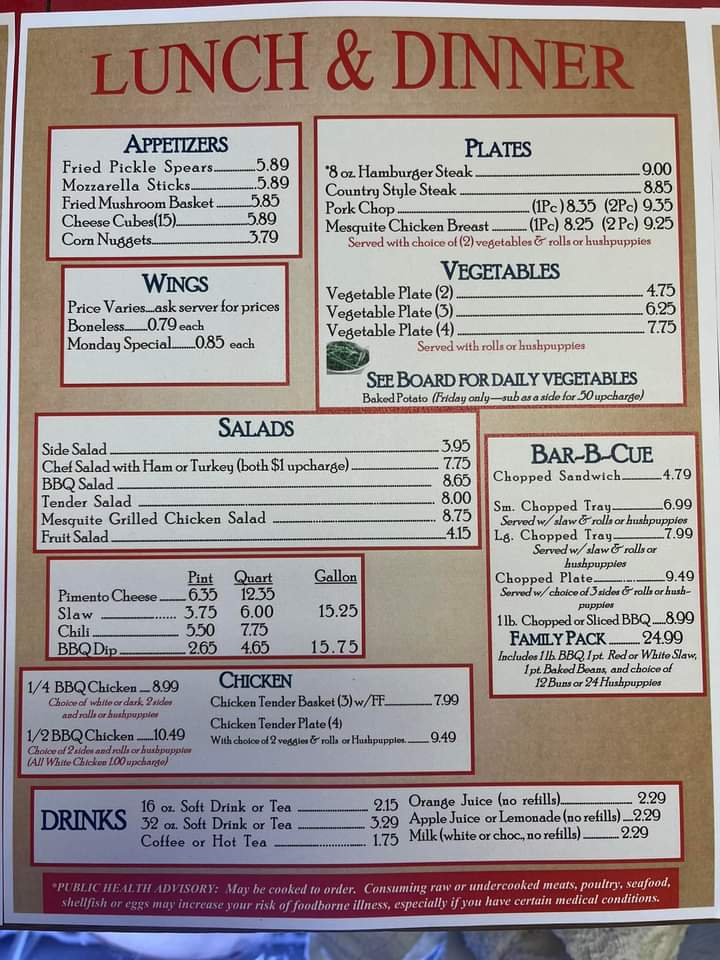 LUNCH & DINNER
APPETIZERS
Fried Pickle Spears 5.89
Mozzarella Sticks 5.89
Fried Mushroom Basket 5.85
Cheese Cubes(15) 5.89
Corn Nuggets 3.79
WINGS
Price Varies...ask server for prices
Boneless 0.79 each
Monday Special 0.85 each
PLATES
*8 oz. Hamburger Steak 9.00
Country Style Steak 8.85
Pork Chop (1Pc) 8.35 (2Pc) 9.35
Mesquite Chicken Breast (1Pc) 8.25 (2 Pc) 9.25
Served with choice of (2) vegetables & rolls or hushpuppies
VEGETABLES
Vegetable Plate (2) 4.75
Vegetable Plate (3) 6.25
Vegetable Plate (4) 7.75
Served with rolls or hushpuppies
SEE BOARD FOR DAILY VEGETABLES
Baked Potato (Friday only—sub as a side for .50 upcharge)
SALADS
Side Salad 3.95
Chef Salad with Ham or Turkey (both $1 upcharge) 7.75
BBQ Salad 8.65
Tender Salad 8.00
Mesquite Grilled Chicken Salad 8.75
Fruit Salad 4.15
Pint Quart Gallon
Pimento Cheese 6.35 12.35
Slaw 3.75 6.00 15.25
Chili 5.50 7.75
BBQ Dip 2.65 4.65 15.75
BAR-B-CUE
Chopped Sandwich 4.79
Sm. Chopped Tray 6.99
Served w/ slaw & rolls or hushpuppies
Lg. Chopped Tray 7.99
Served w/ slaw & rolls or
hushpuppies
Chopped Plate 9.49
Served w/ choice of 3 sides & rolls or hush-
puppies
1 lb. Chopped or Sliced BBQ 8.99
FAMILY PACK 24.99
Includes 1 lb. BBQ, 1 pt. Red or White Slaw,
1 pt. Baked Beans, and choice of
12 Buns or 24 Hushpuppies
1/4 BBQ Chicken 8.99
Choice of white or dark, 2 sides
and rolls or hushpuppies
1/2 BBQ Chicken 10.49
Choice of 2 sides and rolls or hushpuppies
(All White Chicken 1.00 upcharge)
CHICKEN
Chicken Tender Basket (3) w/FF 7.99
Chicken Tender Plate (4)
With choice of 2 veggies & rolls or Hushpuppies. 9.49
DRINKS
16 oz. Soft Drink or Tea 2.15
32 oz. Soft Drink or Tea 3.29
Coffee or Hot Tea 1.75
Orange Juice (no refills) 2.29
Apple Juice or Lemonade (no refills) 2.29
Milk (white or choc., no refills) 2.29
*PUBLIC HEALTH ADVISORY: May be cooked to order. Consuming raw or undercooked meats, poultry, seafood,
shellfish or eggs may increase your risk of foodborne illness, especially if you have certain medical conditions.